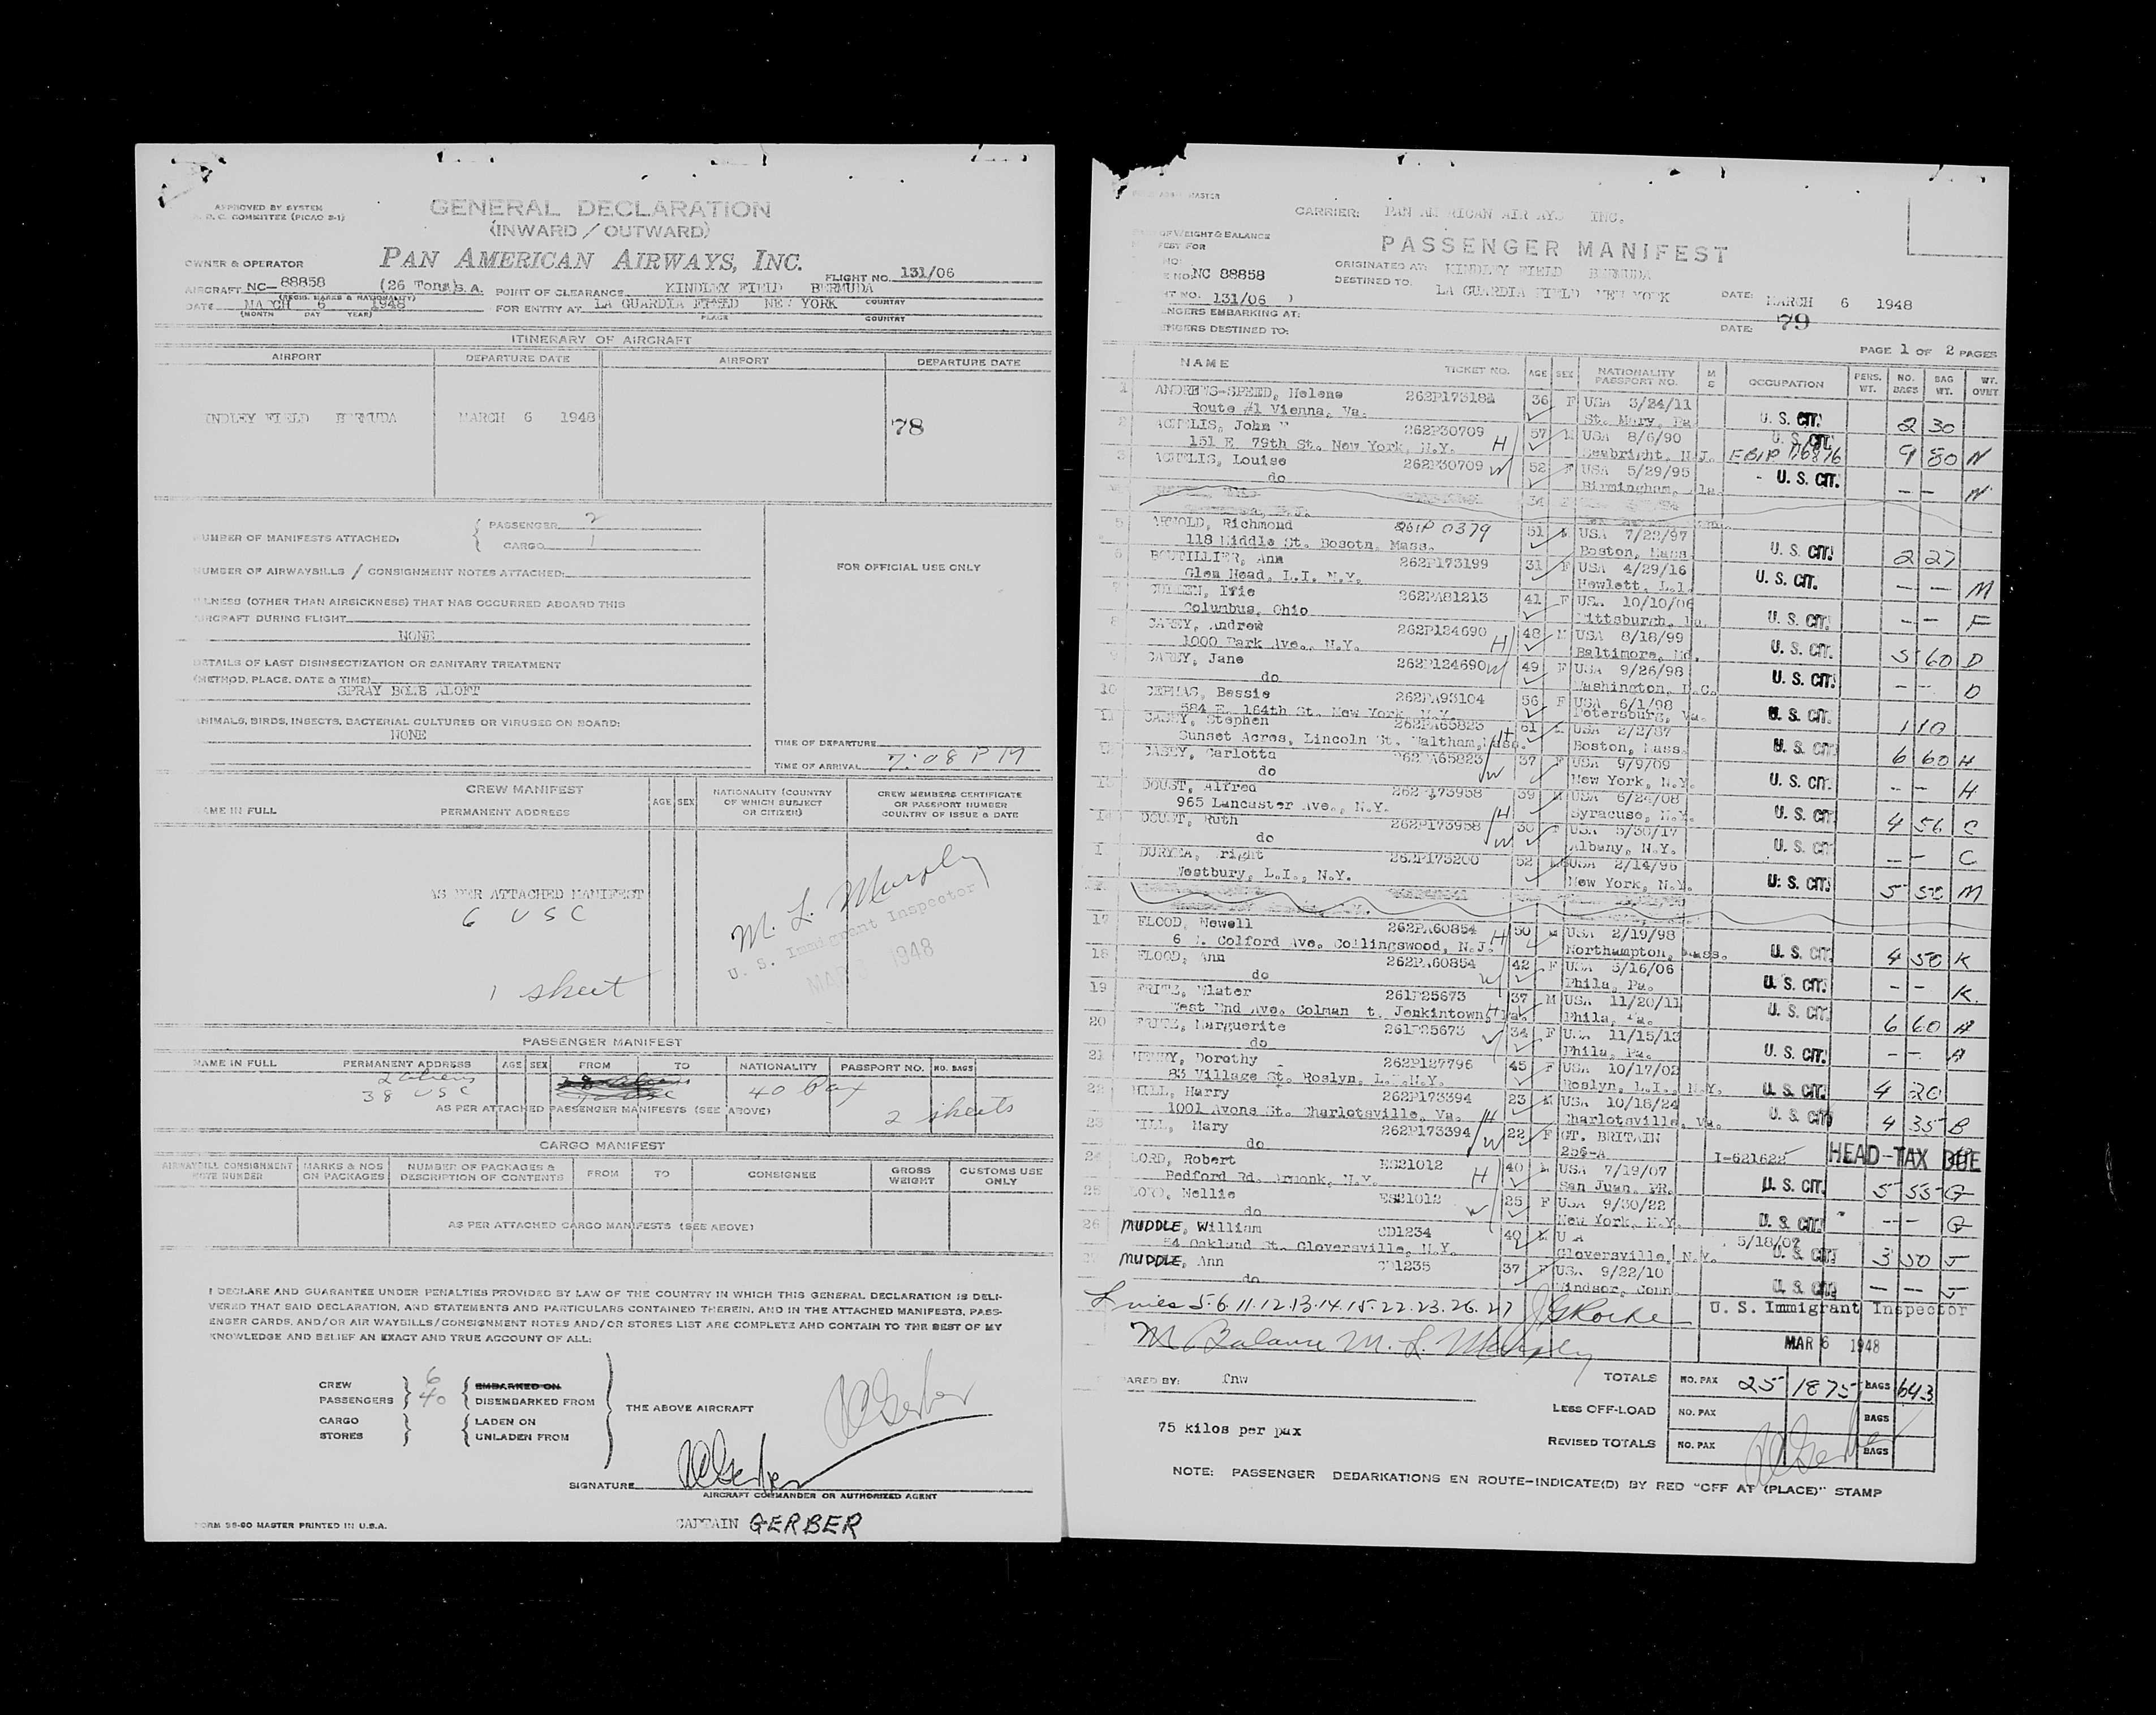 APPROVED BY SYSTEM
COMMITTEE (PICAO B-1)
GENERAL DECLARATION
(INWARD / OUTWARD)
PAN AMERICAN AIRWAYS, INC.
OWNER & OPERATOR
FLIGHT NO. 131/06
AIRCRAFT NC- 88858 (26 Tons) S.A. POINT OF CLEARANCE KINDLEY FIELD BERMUDA
(REGIS. MARKS & NATIONALITY) COUNTRY
DATE MARCH 6 1948 FOR ENTRY AT LA GUARDIA FIELD NEW YORK
(MONTH DAY YEAR) PLACE COUNTRY
ITINERARY OF AIRCRAFT
AIRPORT DEPARTURE DATE AIRPORT DEPARTURE DATE
INDLEY FIELD BERMUDA MARCH 6 1948
78
NUMBER OF MANIFESTS ATTACHED, { PASSENGER 2
CARGO 1
NUMBER OF AIRWAYBILLS / CONSIGNMENT NOTES ATTACHED:
FOR OFFICIAL USE ONLY
ILLNESS (OTHER THAN AIRSICKNESS) THAT HAS OCCURRED ABOARD THIS
AIRCRAFT DURING FLIGHT
NONE
DETAILS OF LAST DISINSECTIZATION OR SANITARY TREATMENT
(METHOD, PLACE, DATE & TIME)
SPRAY BOMB ALOFT
ANIMALS, BIRDS, INSECTS, BACTERIAL CULTURES OR VIRUSES ON BOARD:
NONE
TIME OF DEPARTURE
TIME OF ARRIVAL 7:08 PM
CREW MANIFEST
NAME IN FULL PERMANENT ADDRESS AGE SEX NATIONALITY (COUNTRY OF WHICH SUBJECT OR CITIZEN) CREW MEMBERS CERTIFICATE OR PASSPORT NUMBER COUNTRY OF ISSUE & DATE
AS PER ATTACHED MANIFEST
6 USC
M. L. Murphy
U. S. Immigrant Inspector
MAR 1948
1 sheet
PASSENGER MANIFEST
NAME IN FULL PERMANENT ADDRESS AGE SEX FROM TO NATIONALITY PASSPORT NO. NO. BAGS
2 aliens
38 USC 40 Pax
AS PER ATTACHED PASSENGER MANIFESTS (SEE ABOVE)
2 sheets
CARGO MANIFEST
AIRWAYBILL CONSIGNMENT NOTE NUMBER MARKS & NOS ON PACKAGES NUMBER OF PACKAGES & DESCRIPTION OF CONTENTS FROM TO CONSIGNEE GROSS WEIGHT CUSTOMS USE ONLY
AS PER ATTACHED CARGO MANIFESTS (SEE ABOVE)
I DECLARE AND GUARANTEE UNDER PENALTIES PROVIDED BY LAW OF THE COUNTRY IN WHICH THIS GENERAL DECLARATION IS DELI-
VERED THAT SAID DECLARATION, AND STATEMENTS AND PARTICULARS CONTAINED THEREIN, AND IN THE ATTACHED MANIFESTS, PASS-
ENGER CARDS, AND/OR AIR WAYBILLS/CONSIGNMENT NOTES AND/OR STORES LIST ARE COMPLETE AND CONTAIN TO THE BEST OF MY
KNOWLEDGE AND BELIEF AN EXACT AND TRUE ACCOUNT OF ALL:
CREW 6 EMBARKED ON
PASSENGERS 40 DISEMBARKED FROM THE ABOVE AIRCRAFT
CARGO LADEN ON
STORES UNLADEN FROM
SIGNATURE
AIRCRAFT COMMANDER OR AUTHORIZED AGENT
FORM 96-60 MASTER PRINTED IN U.S.A.
CAPTAIN GERBER
MASTER
CARRIER: PAN AMERICAN AIRWAYS INC.
OF WEIGHT & BALANCE
PASSENGER MANIFEST
NC 88858
ORIGINATED AT: KINDLEY FIELD BERMUDA
DESTINED TO: LA GUARDIA FIELD NEW YORK DATE: MARCH 6 1948
131/06
79
DATE:
ENGERS EMBARKING AT:
ENGERS DESTINED TO:
PAGE 1 OF 2 PAGES
NAME TICKET NO. AGE SEX NATIONALITY PASSPORT NO. M S OCCUPATION PERS. WT. NO. BAGS BAG WT. WT. OVWT
1 ANDREWS-SPEED, Helene 262P173184 36 F USA 3/24/11
Route #1 Vienna, Va. St. Mary, Pa U. S. CIT. 2 30
2 ACHELIS, John 262P30709 57 M USA 8/6/90 U. S. CIT.
151 E 79th St. New York, N.Y. H Seabright, N.J. 9 80 N
3 ACHELIS, Louise 262P30709 W 52 F USA 5/29/95 U. S. CIT.
do Birmingham, Ala. -- N
5 ARNOLD, Richmond 261P 0379 51 M USA 7/22/97
118 Middle St. Bosotn, Mass. Boston, Mass U. S. CIT. 2 27
6 BOUTILLIER, Ann 262P173199 31 F USA 4/29/16
Glen Head, L.I. N.Y. Hewlett, L.I. U. S. CIT. -- M
262PA81213 41 F USA 10/10/06
Columbus, Ohio Pittsburgh, Pa. U. S. CIT. -- F
8 CAREY, Andrew 262P124690 48 M USA 8/18/99
1000 Park Ave., N.Y. H Baltimore, Md. U. S. CIT. 5 60 D
9 CAREY, Jane 262P124690 W 49 F USA 9/26/98
do Washington, D.C. U. S. CIT. -- D
10 CEPHAS, Bessie 262PA93104 56 F USA 6/1/98
584 E. 164th St. New York, N.Y. Petersburg, Va. U. S. CIT. 1 10
11 CASEY, Stephen 262PA65823 61 M USA 2/2/87
Sunset Acres, Lincoln St. Waltham, Mass. H Boston, Mass. U. S. CIT. 6 60 H
12 CASEY, Carlotta 262PA65823 37 F USA 9/9/09
do W New York, N.Y. U. S. CIT. -- H
13 DOUST, Alfred 262P173958 39 M USA 6/24/08
965 Lancaster Ave., N.Y. H Syracuse, N.Y. U. S. CIT 4 56 C
14 DOUST, Ruth 262P173958 30 F USA 5/30/17
do W Albany, N.Y. U. S. CIT -- C
DURYEA, Wright 262P173200 52 M USA 2/14/96
Westbury, L.I., N.Y. New York, N.Y. U. S. CIT. 5 50 M
17 FLOOD, Newell 262PA60854 50 M USA 2/19/98
6 Colford Ave. Collingswood, N.J. H Northampton, Mass. U. S. CIT 4 50 K
18 FLOOD, Ann 262PA60854 42 F USA 3/16/06
do W Phila, Pa. U. S. CIT. -- K.
19 FRITZ, Wlater 261P25673 37 M USA 11/20/11
West End Ave. Colman t. Jenkintown, Pa. H Phila, Pa. U. S. CIT 6 60 A
20 FRITZ, Marguerite 261P25673 W 34 F USA 11/15/13
do Phila, Pa. U. S. CIT. -- A
21 HENRY, Dorothy 262P127796 45 F USA 10/17/02
83 Village St. Roslyn, L.I. N.Y. Roslyn, L.I., N.Y. U. S. CIT 4 20
22 HILL, Harry 262P173394 23 M USA 10/18/24
1001 Avons St. Charlotsville, Va. H Charlotsville, Va. U. S. CIT 4 35 B
23 HILL, Mary 262P173394 W 22 F GT. BRITAIN
do 256-A I-621622 HEAD-TAX DUE
24 LORD, Robert ES21012 40 M USA 7/19/07
Bedford Rd. Armonk, N.Y. H San Juan, PR. U. S. CIT. 5 55 G
25 LORD, Nellie ES21012 25 F USA 9/30/22
do W New York, N.Y. U. S. CIT. -- G
26 MUDDLE, William CD1234 40 M U A 5/18/07
54 Oakland St. Gloversville, N.Y. Gloversville, N.Y. U. S. CIT 3 50 J
MUDDLE, Ann CD1235 37 F USA 9/22/10
do Windsor, Conn. U. S. CIT. -- J
Lines 5.6.11.12.13.14.15.22.23.26.27
U. S. Immigrant Inspector
Balance M. L. Murphy
MAR 6 1948
ARED BY: fnw
TOTALS NO. PAX 25 1875 BAGS 643
LESS OFF-LOAD NO. PAX BAGS
75 kilos per pax
REVISED TOTALS NO. PAX BAGS
NOTE: PASSENGER DEBARKATIONS EN ROUTE-INDICATE(D) BY RED "OFF AT (PLACE)" STAMP